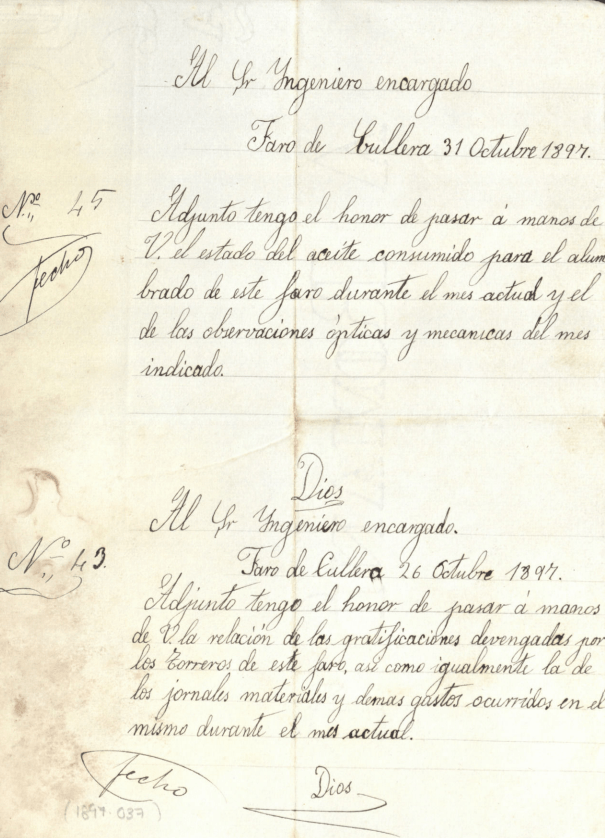 Al Sr Yngeniero encargado
Faro de Cullera 31 Octubre 1897.
N.º 45
fecho
Adjunto tengo el honor de pasar á manos de
V. el estado del aceite consumido para el alum
brado de este faro durante el mes actual y el
de las observaciones ópticas y mecanicas del mes
indicado.
Dios
Al Sr Yngeniero encargado.
N.º 43.
Faro de Cullera 26 Octubre 1897.
Adjunto tengo el honor de pasar á manos
de V. la relación de las gratificaciones devengadas por
los torreros de este faro, asi como igualmente la de
los jornales materiales y demas gastos ocurridos en el
mismo durante el mes actual.
fecho
Dios
(1897·037)